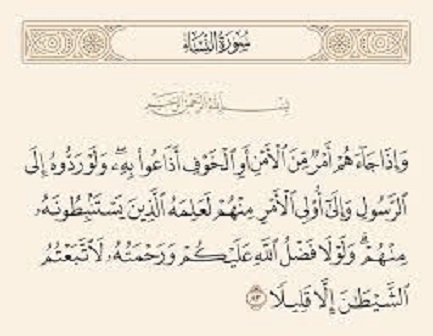 سُورَةُ النِّسَاءِ
بِسْمِ اللَّهِ الرَّحْمَٰنِ الرَّحِيمِ
وَإِذَا جَآءَهُمْ أَمْرٌ مِّنَ ٱلْأَمْنِ أَوِ ٱلْخَوْفِ أَذَاعُوا۟ بِهِۦ ۖ وَلَوْ رَدُّوهُ إِلَى
ٱلرَّسُولِ وَإِلَىٰٓ أُو۟لِى ٱلْأَمْرِ مِنْهُمْ لَعَلِمَهُ ٱلَّذِينَ يَسْتَنۢبِطُونَهُۥ
مِنْهُمْ ۗ وَلَوْلَا فَضْلُ ٱللَّهِ عَلَيْكُمْ وَرَحْمَتُهُۥ لَٱتَّبَعْتُمُ
ٱلشَّيْطَٰنَ إِلَّا قَلِيلًا ٨٣